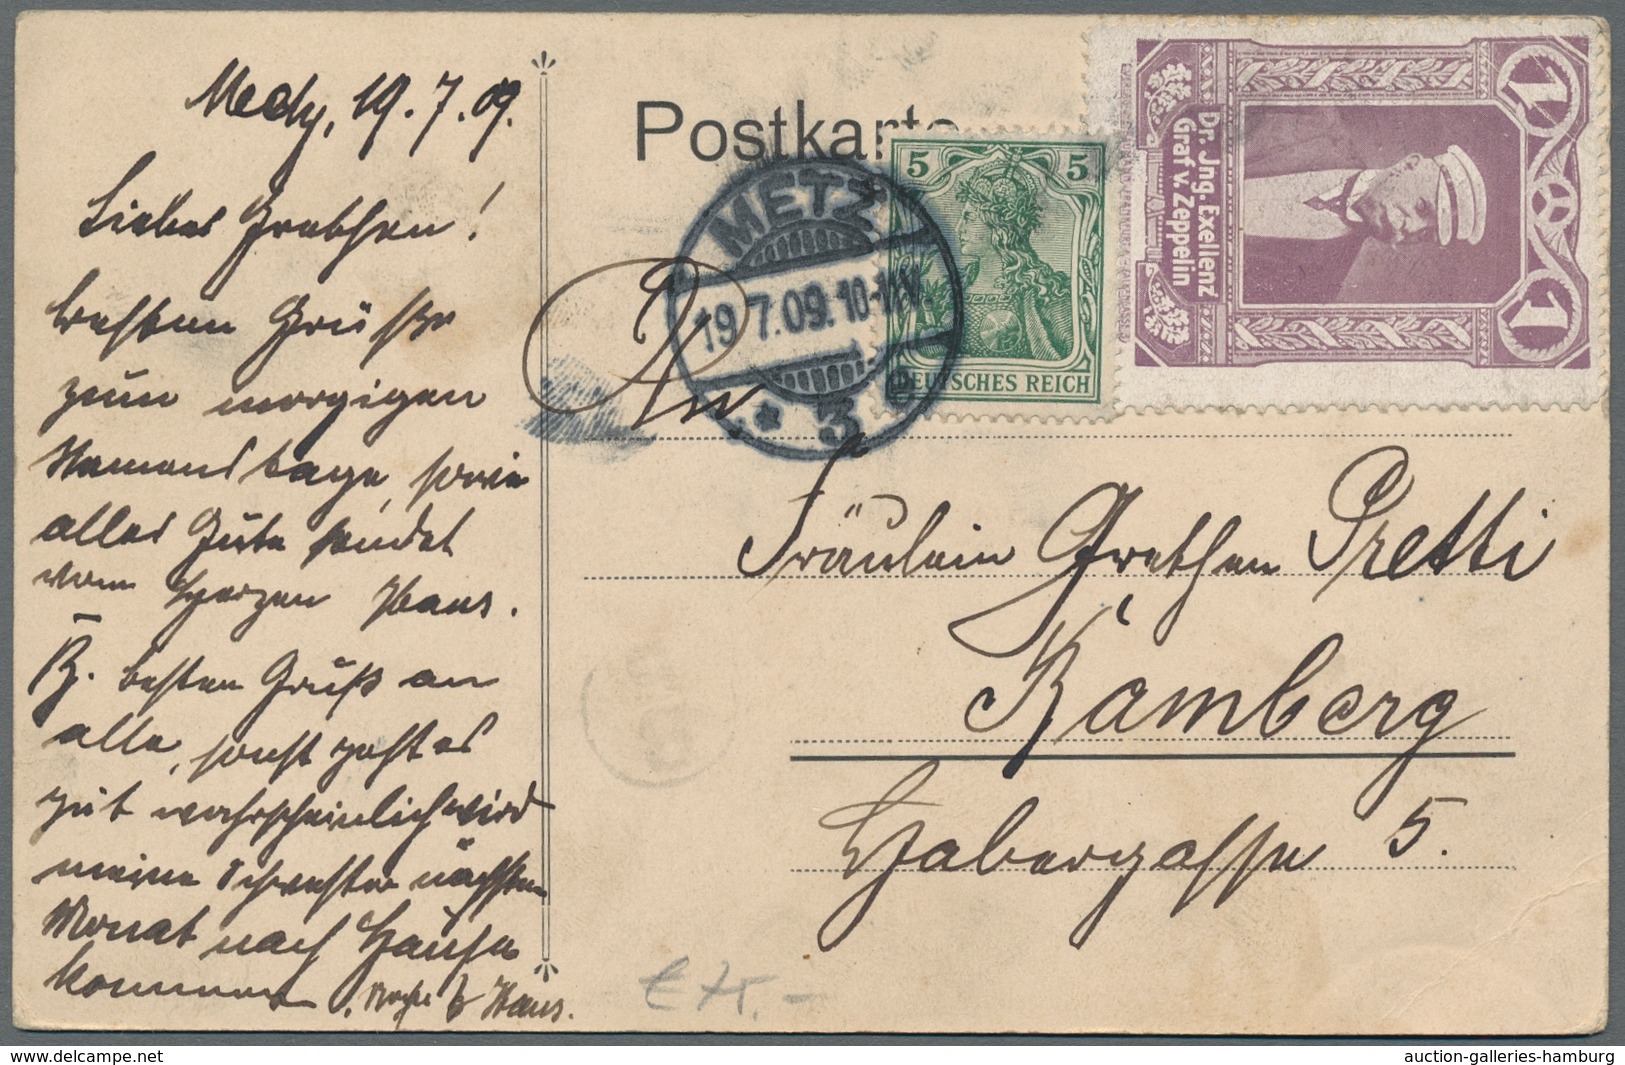 Metz, 19.7.09.
Liebes Gretchen!
besten Grüße
zum morgigen
Namenstage, sowie
alles Gute sendet
vom Herzen Hans.
besten Gruß an
alle, sonst geht es
gut wahrscheinlich wird
meine Schwester nächsten
Monat nach Hause
kommen. Hans.
Postkarte
METZ
19.7.09.10-11V.
* 3
5 5
DEUTSCHES REICH
1 1
Dr. Jng. Exellenz
Graf v. Zeppelin
An
Fräulein Grethen Pretti
Bamberg
Habergasse 5.
€ 75.-
www.delcampe.net
auction-galleries-hamburg